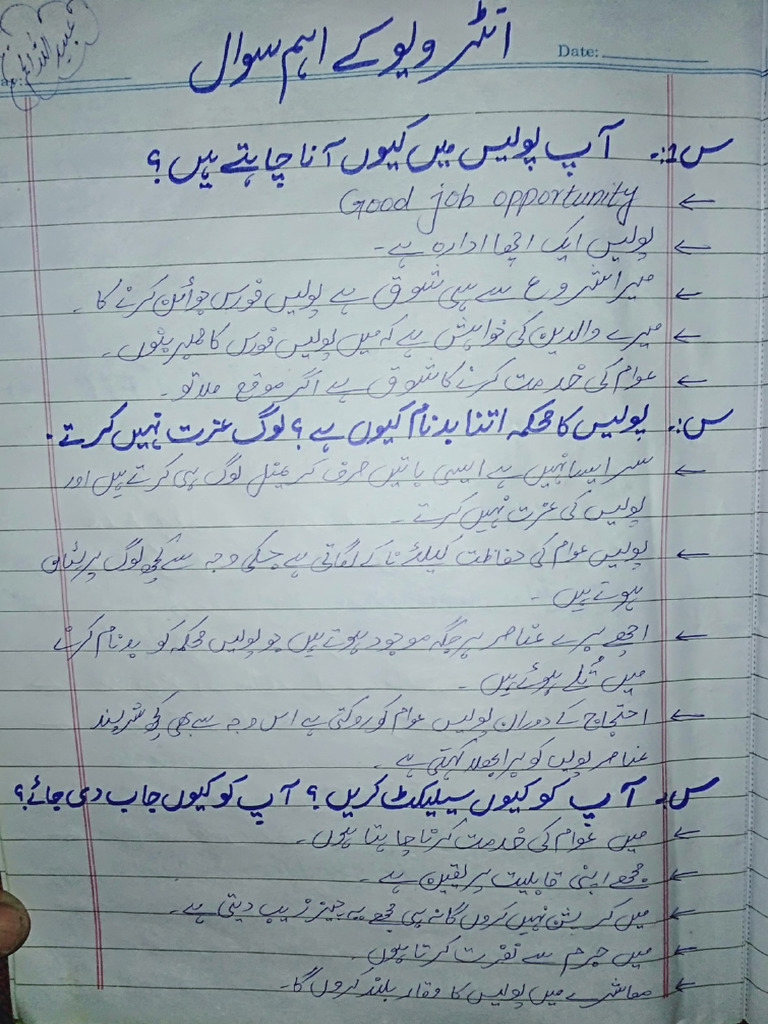 عبید اللہ
Date:
انٹرویو کے اہم سوال
س1:۔ آپ پولیس میں کیوں آنا چاہتے ہیں؟
← Good job opportunity
← پولیس ایک اچھا ادارہ ہے۔
← میرا شروع سے ہی شوق ہے پولیس فورس جوائن کرنے کا ۔
← میرے والدین کی خواہش ہے کہ میں پولیس فورس کا ممبر بنوں۔
← عوام کی خدمت کرنے کا شوق ہے اگر موقع ملا تو ۔
س:۔ پولیس کا محکمہ اتنا بدنام کیوں ہے؟ لوگ عزت نہیں کرتے ۔
← سر ایسا نہیں ہے ایسی باتیں صرف کریمنل لوگ ہی کرتے ہیں اور
پولیس کی عزت نہیں کرتے ۔
← پولیس عوام کی حفاظت کیلئے ناکے لگاتی ہے جسکی وجہ سے کچھ لوگ پریشان
ہوتے ہیں ۔
← اچھے برے عناصر ہر جگہ موجود ہوتے ہیں جو پولیس محکمہ کو بدنام کرنے
میں تُلے ہوئے ہیں ۔
← احتجاج کے دوران پولیس عوام کو روکتی ہے اس وجہ سے بھی کچھ شرپسند
عناصر پولیس کو برا بھلا کہتی ہے ۔
س:۔ آپ کو کیوں سیلیکٹ کریں؟ آپ کو کیوں جاب دی جائے؟
← میں عوام کی خدمت کرنا چاہتا ہوں۔
← مجھے اپنی قابلیت پر یقین ہے ۔
← میں کرپشن نہیں کروں گا نہ ہی مجھے یہ چیز زیب دیتی ہے ۔
← میں جرم سے نفرت کرتا ہوں۔
← معاشرے میں پولیس کا وقار بلند کروں گا۔